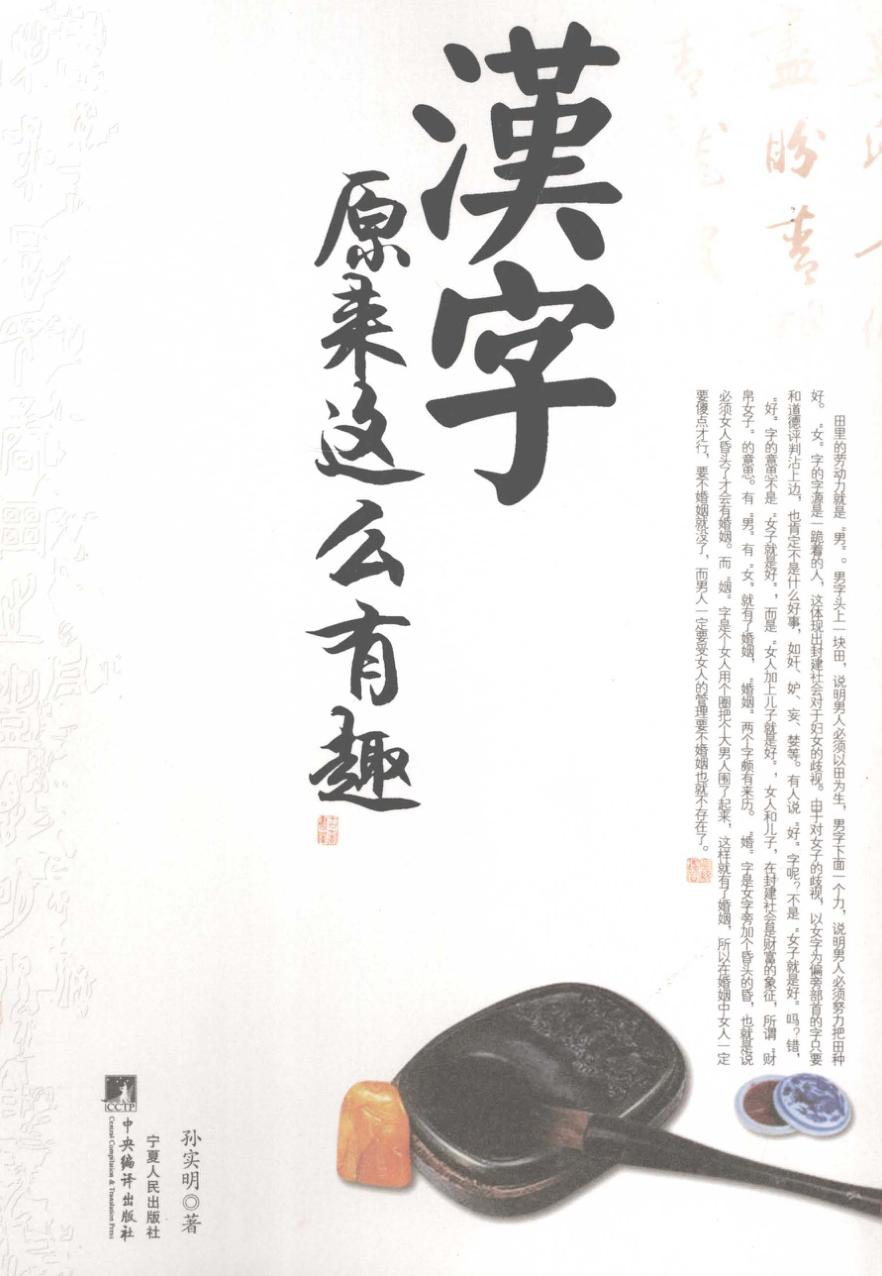 漢字
原来这么有趣
田里的劳动力就是“男”。男字头上一块田，说明男人必须以田为生，男字下面一个力，说明男人必须努力把田种
好。“女”字的字源是一跪着的人，这体现出封建社会对于妇女的歧视。由于对女子的歧视，以女字为偏旁部首的字只要
和道德评判沾上边，也肯定不是什么好事，如奸、妒、妄、婪等。有人说“好”字呢？不是“女子就是好”吗？错，
“好”字的意思不是“女子就是好”，而是“女人加上儿子就是好”，女人和儿子，在封建社会是财富的象征，所谓“财
帛女子”的意思。有“男”有“女”就有了婚姻，“婚姻”两个字颇有来历。“婚”字是女字旁加个昏头的昏，也就是说
必须女人昏头了才会有婚姻。而“姻”字是个女人用个圈把个大男人围了起来，这样就有了婚姻，所以在婚姻中女人一定
要傻点才行，要不婚姻就没了，而男人一定要受女人的管理要不婚姻也就不存在了。
盼
孙实明◎著
宁夏人民出版社
CCTP
中央编译出版社
Central Compilation & Translation Press